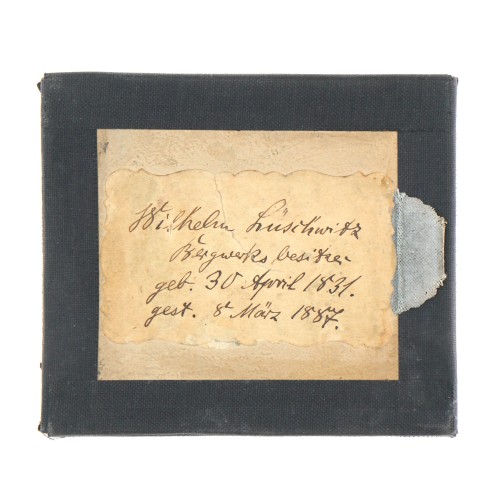 Wilhelm Lüschwitz
Bergwerks besitzer
geb. 30 April 1831.
gest. 8 März 1887.